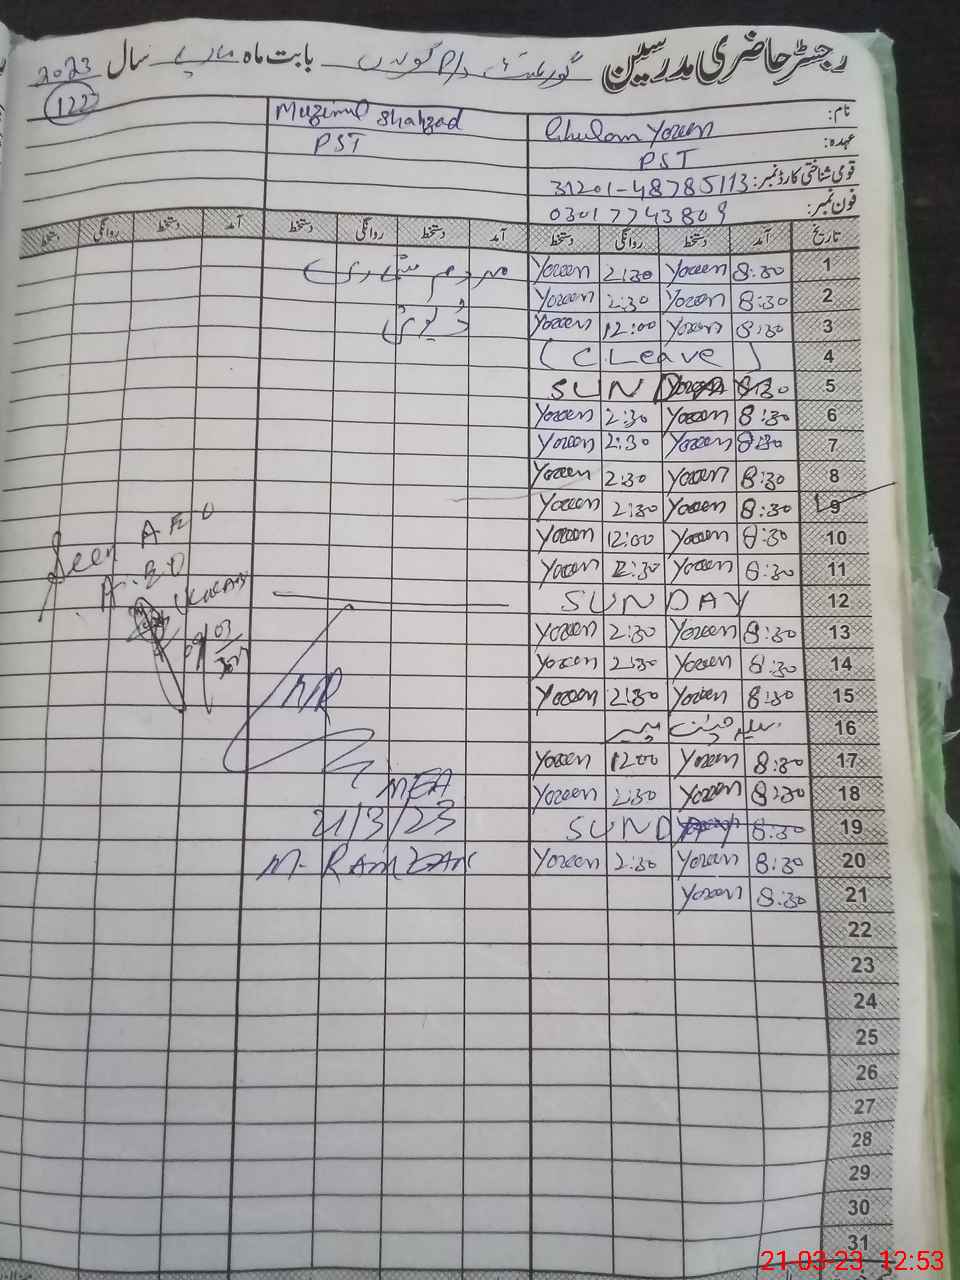 رجسٹر حاضری مدرسین گورنمنٹ بابت ماہ مارچ سال 2023
122
نام: Ghulam Yaseen Muzimil Shahzad
عہدہ: PST PST
قومی شناختی کارڈ نمبر: 31201-48785113
فون نمبر: 03017743809
تاریخ آمد دستخط روانگی دستخط آمد دستخط روانگی دستخط آمد دستخط روانگی دستخط
1 8:30 Yaseen 2:30 Yaseen مردم شماری
2 8:30 Yaseen 2:30 Yaseen ڈیوٹی
3 8:30 Yaseen 12:00 Yaseen
4 (C Leave)
5 SUNDAY 8:30
6 8:30 Yaseen 2:30 Yaseen
7 8:30 Yaseen 2:30 Yaseen
8 8:30 Yaseen 2:30 Yaseen
9 8:30 Yaseen 2:30 Yaseen
10 8:30 Yaseen 12:00 Yaseen
11 8:30 Yaseen 2:30 Yaseen
12 SUNDAY
13 8:30 Yaseen 2:30 Yaseen
14 8:30 Yaseen 2:30 Yaseen
15 8:30 Yaseen 2:30 Yaseen
16
17 8:30 Yaseen 12:00 Yaseen
18 8:30 Yaseen 2:30 Yaseen
19 SUNDAY 8:30
20 8:30 Yaseen 2:30 Yaseen
21 8:30 Yaseen
22
23
24
25
26
27
28
29
30
31
Seen AEO
09/03
MEA
21/3/23
M-RAMZAN
21-03-23 12:53